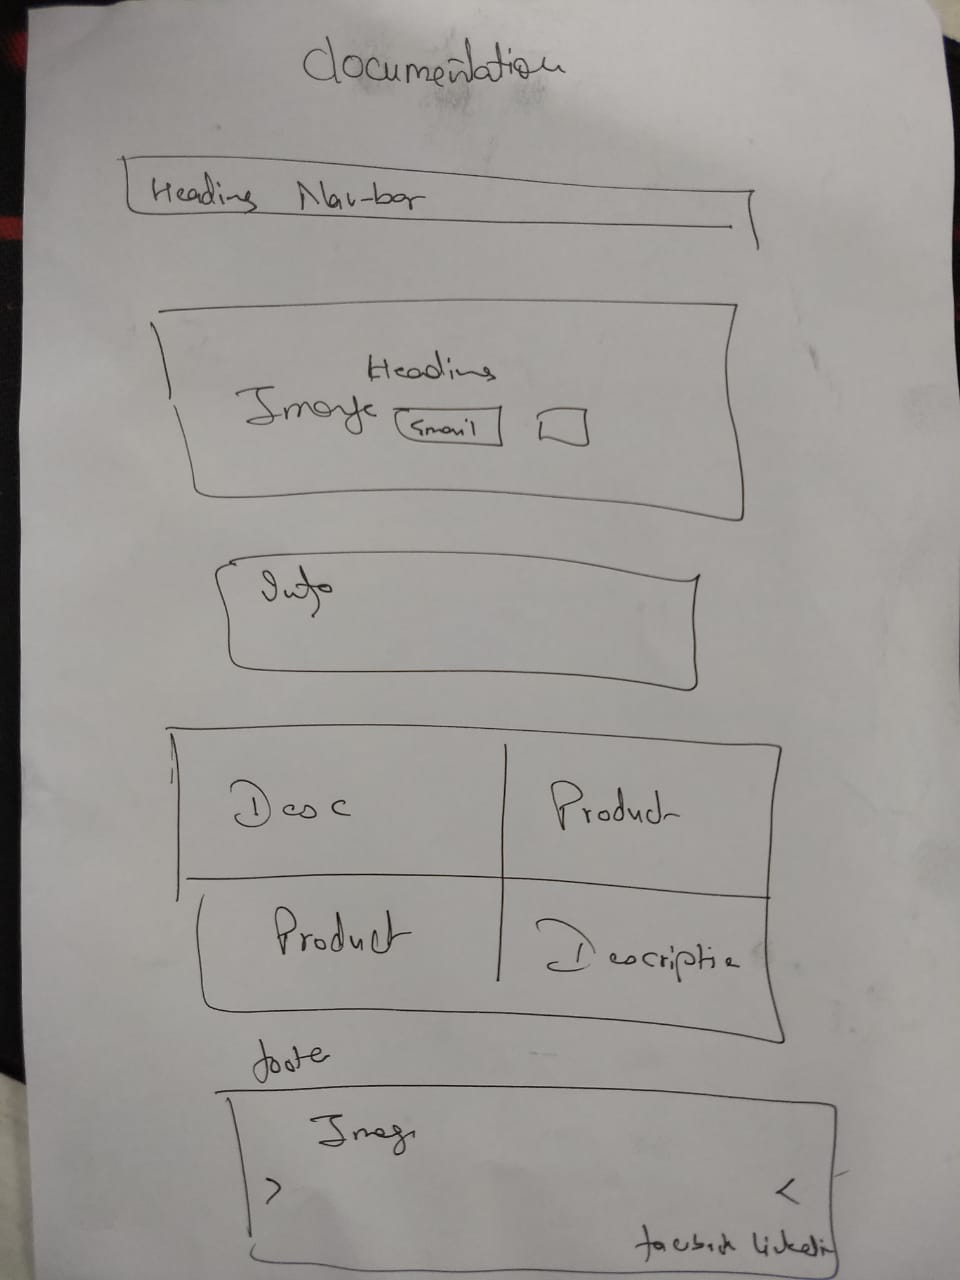 documentation
Heading Nav-bar
Heading
Image Email
Info
Desc Product
Product Descriptio
foote
Imag
> <
facbook linkedin